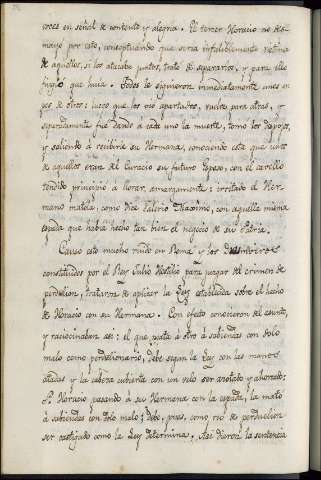 voces en señal de contento y alegria. El tercer Horacio no des-
mayo por esto; conceptuando que seria infaliblemente victima
de aquellos, si los atacaba juntos, trató de separarlos, y para ello
fingió que huia. Todos le siguieron inmediatamente unos en
pos de otros; luego que los vió apartados, vuelve para atras, y
separadamente fue dando á cada uno la muerte, tomó los despojos,
y saliendo á recibirle su Hermana, conociendo esta que unos
de aquellos eran del Curacio su futuro Esposo, con el cavello
tendido principio a llorar amargamente: irritado el Her-
mano matóla, como dice Valerio Maximo, con aquella misma
espada que habia hecho tan bien el negocio de su Patria.
Causó esto mucho ruido en Roma y los Duumviros
constituidos por el Rey Tulio Hostilio para juzgar del crimen de
perduelion, trataron de aplicar la Ley establecida sobre el hecho
de Horacio con su Hermana. Con efecto conocieron del asunto,
y raciocinaban asi: el que mata á otro á sabiendas con dolo
malo como perduelionario, debe segun la Ley con las manos
atadas y la cabeza cubierta con un velo ser azotado y ahorcado;
P. Horacio pasando á su Hermana con la espada, la mató
á sabiendas con dolo malo; debe, pues, como reo de perduelion
ser castigado como la Ley determina. Asi dieron la sentencia